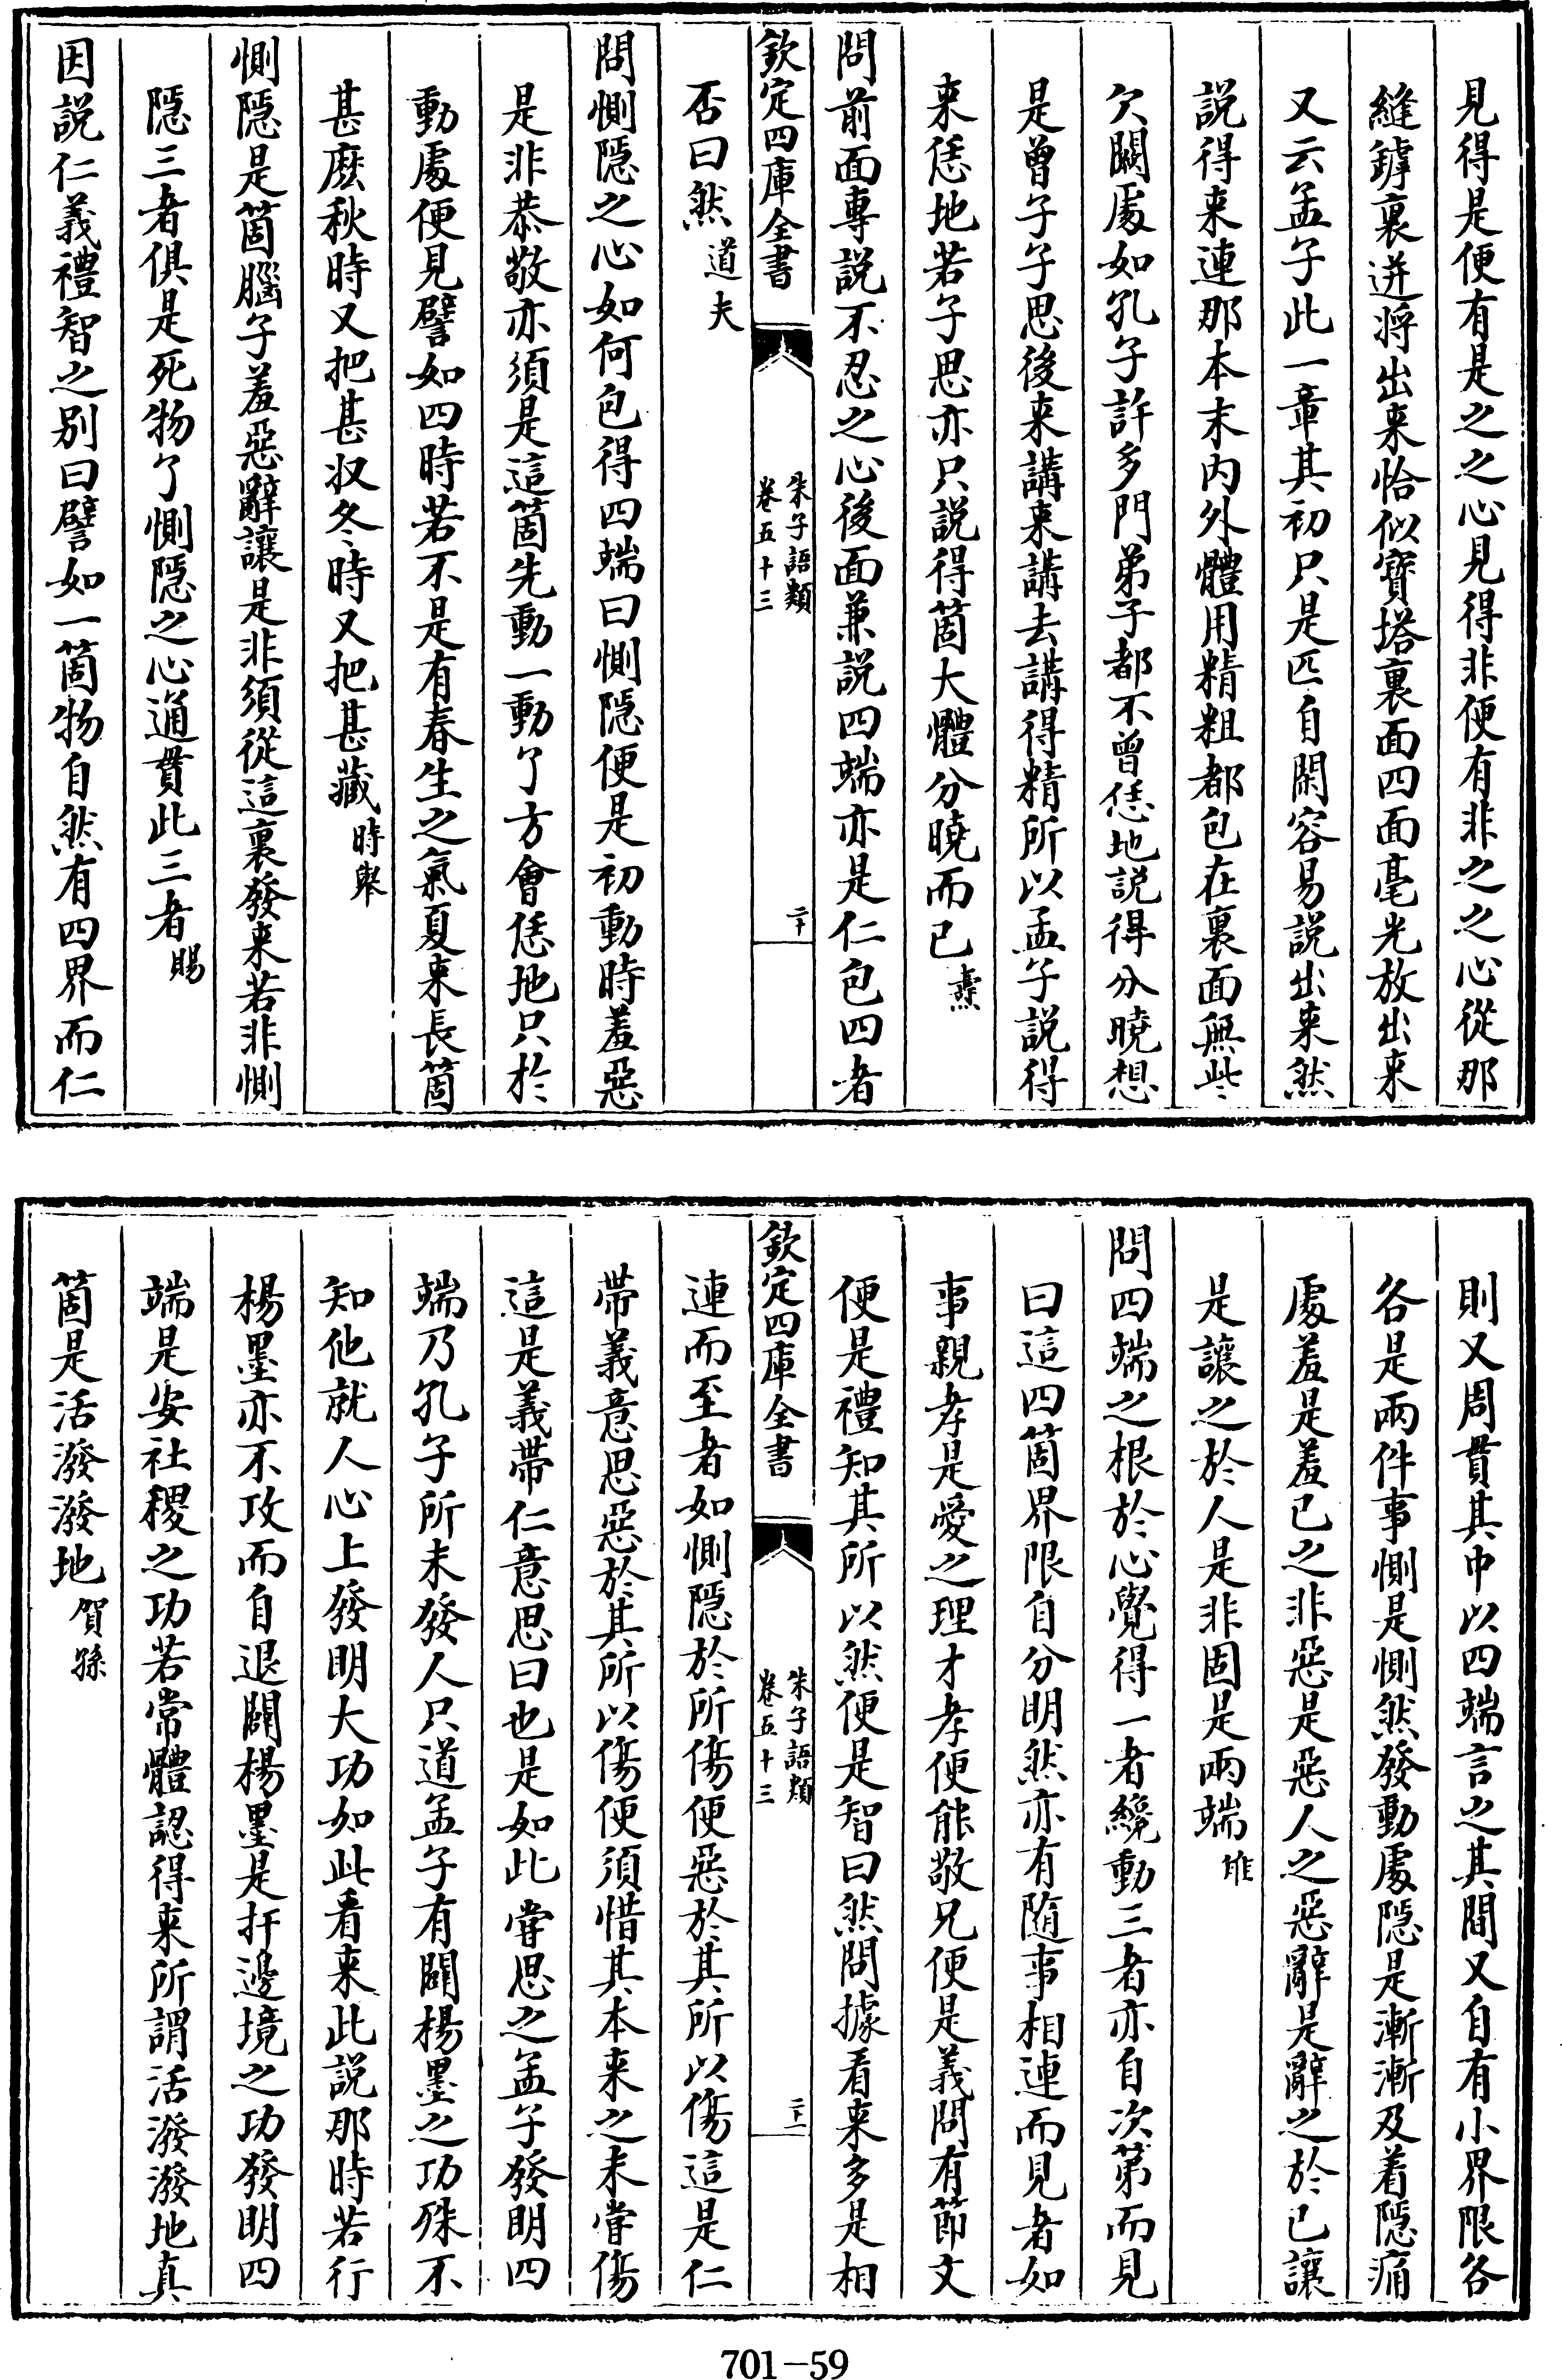 見得是便有是之之心見得非便有非之之心從那
縫罅裏迸將出来恰似寳塔裏面四面毫光放出来
又云孟子此一章其初只是匹自閑容易說出来然
說得来連那本末内外體用精粗都包在裏面無些
欠闕處如孔子許多門弟子都不曾恁地說得分曉想
是曾子子思後来講来講去講得精所以孟子說得
来恁地若子思亦只說得箇大體分曉而已燾
問前面專說不忍之心後面兼說四端亦是仁包四者
欽定四庫全書
朱子語類
卷五十三
二十
否曰然道夫
問惻隠之心如何包得四端曰惻隠便是初動時羞惡
是非恭敬亦須是這箇先動一動了方會恁地只於
動處便見譬如四時若不是有春生之氣夏来長箇
甚麽秋時又把甚收冬時又把甚藏時舉
惻隠是箇腦子羞惡辭讓是非須從這裏發来若非惻
隠三者俱是死物了惻隠之心通貫此三者賜
因說仁義禮智之别曰譬如一箇物自然有四界而仁
則又周貫其中以四端言之其間又自有小界限各
各是兩件事惻是惻然發動處隠是漸漸及着隠痛
處羞是羞已之非惡是惡人之惡辭是辭之於已讓
是讓之於人是非固是兩端雉
問四端之根於心覺得一者纔動三者亦自次第而見
曰這四箇界限自分明然亦有隨事相連而見者如
事親孝是愛之理才孝便能敬兄便是義問有節文
便是禮知其所以然便是智曰然問據看来多是相
欽定四庫全書
朱子語類
卷五十三
二十一
連而至者如惻隠於所傷便惡於其所以傷這是仁
帶義意思惡於其所以傷便須惜其本来之未嘗傷
這是義帶仁意思曰也是如此嘗思之孟子發明四
端乃孔子所未發人只道孟子有闢楊墨之功殊不
知他就人心上發明大功如此看来此說那時若行
楊墨亦不攻而自退闢楊墨是扞邊境之功發明四
端是安社稷之功若常體認得来所謂活潑潑地真
箇是活潑潑地賀孫
701-59